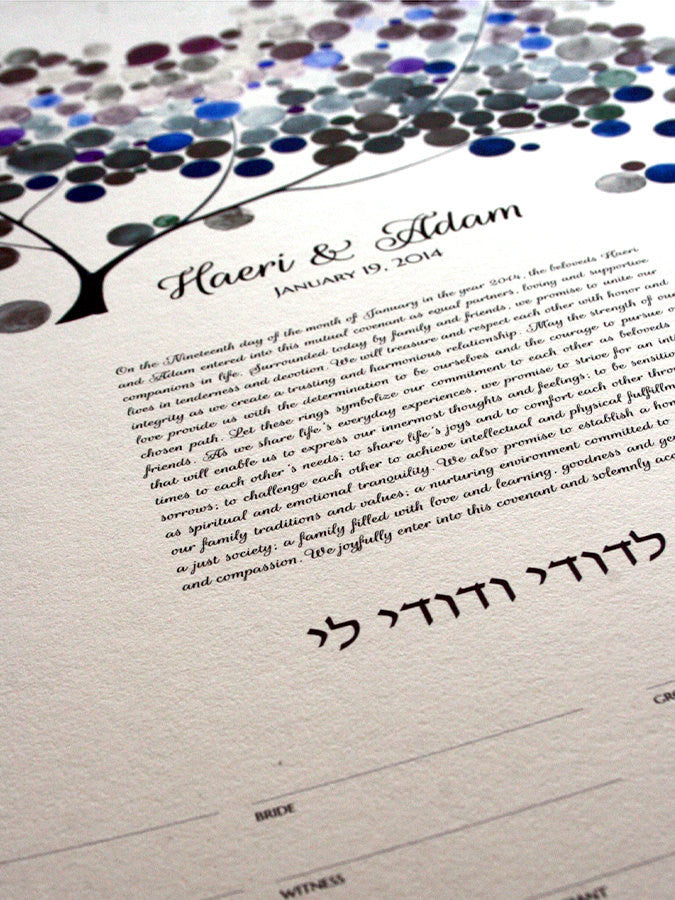 Haeri & Adam
JANUARY 19, 2014
On the Nineteenth day of the month of January in the year 2014, the beloveds Haeri
and Adam entered into this mutual covenant as equal partners, loving and supportive
companions in life. Surrounded today by family and friends, we promise to unite our
lives in tenderness and devotion. We will treasure and respect each other with honor and
integrity as we create a trusting and harmonious relationship. May the strength of our
love provide us with the determination to be ourselves and the courage to pursue
chosen path. Let these rings symbolize our commitment to each other as beloveds
friends. As we share life's everyday experiences, we promise to strive for an
that will enable us to express our innermost thoughts and feelings; to be
times to each other's needs; to share life's joys and to comfort each other
sorrows; to challenge each other to achieve intellectual and physical
as spiritual and emotional tranquility. We also promise to establish a
our family traditions and values; a nurturing environment committed to
a just society; a family filled with love and learning, goodness and
and compassion. We joyfully enter into this covenant and solemnly
לדודי ודודי לי
BRIDE
WITNESS